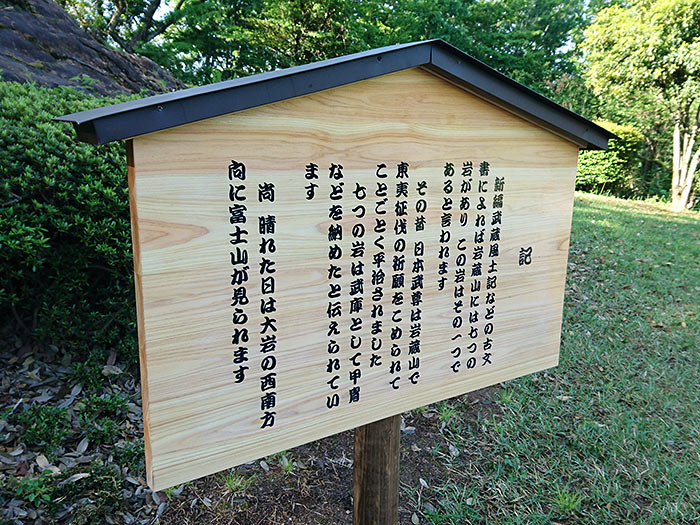 記
新編武蔵風土記などの古文
書によれば岩蔵山には七つの
岩があり この岩はその一つで
あると言われます
その昔 日本武尊は岩蔵山で
東夷征伐の祈願をこめられて
ことごとく平捨されました
七つの岩は武庫として甲冑
などを納めたと伝えられてい
ます
尚 晴れた日は大岩の西南方
向に富士山が見られます